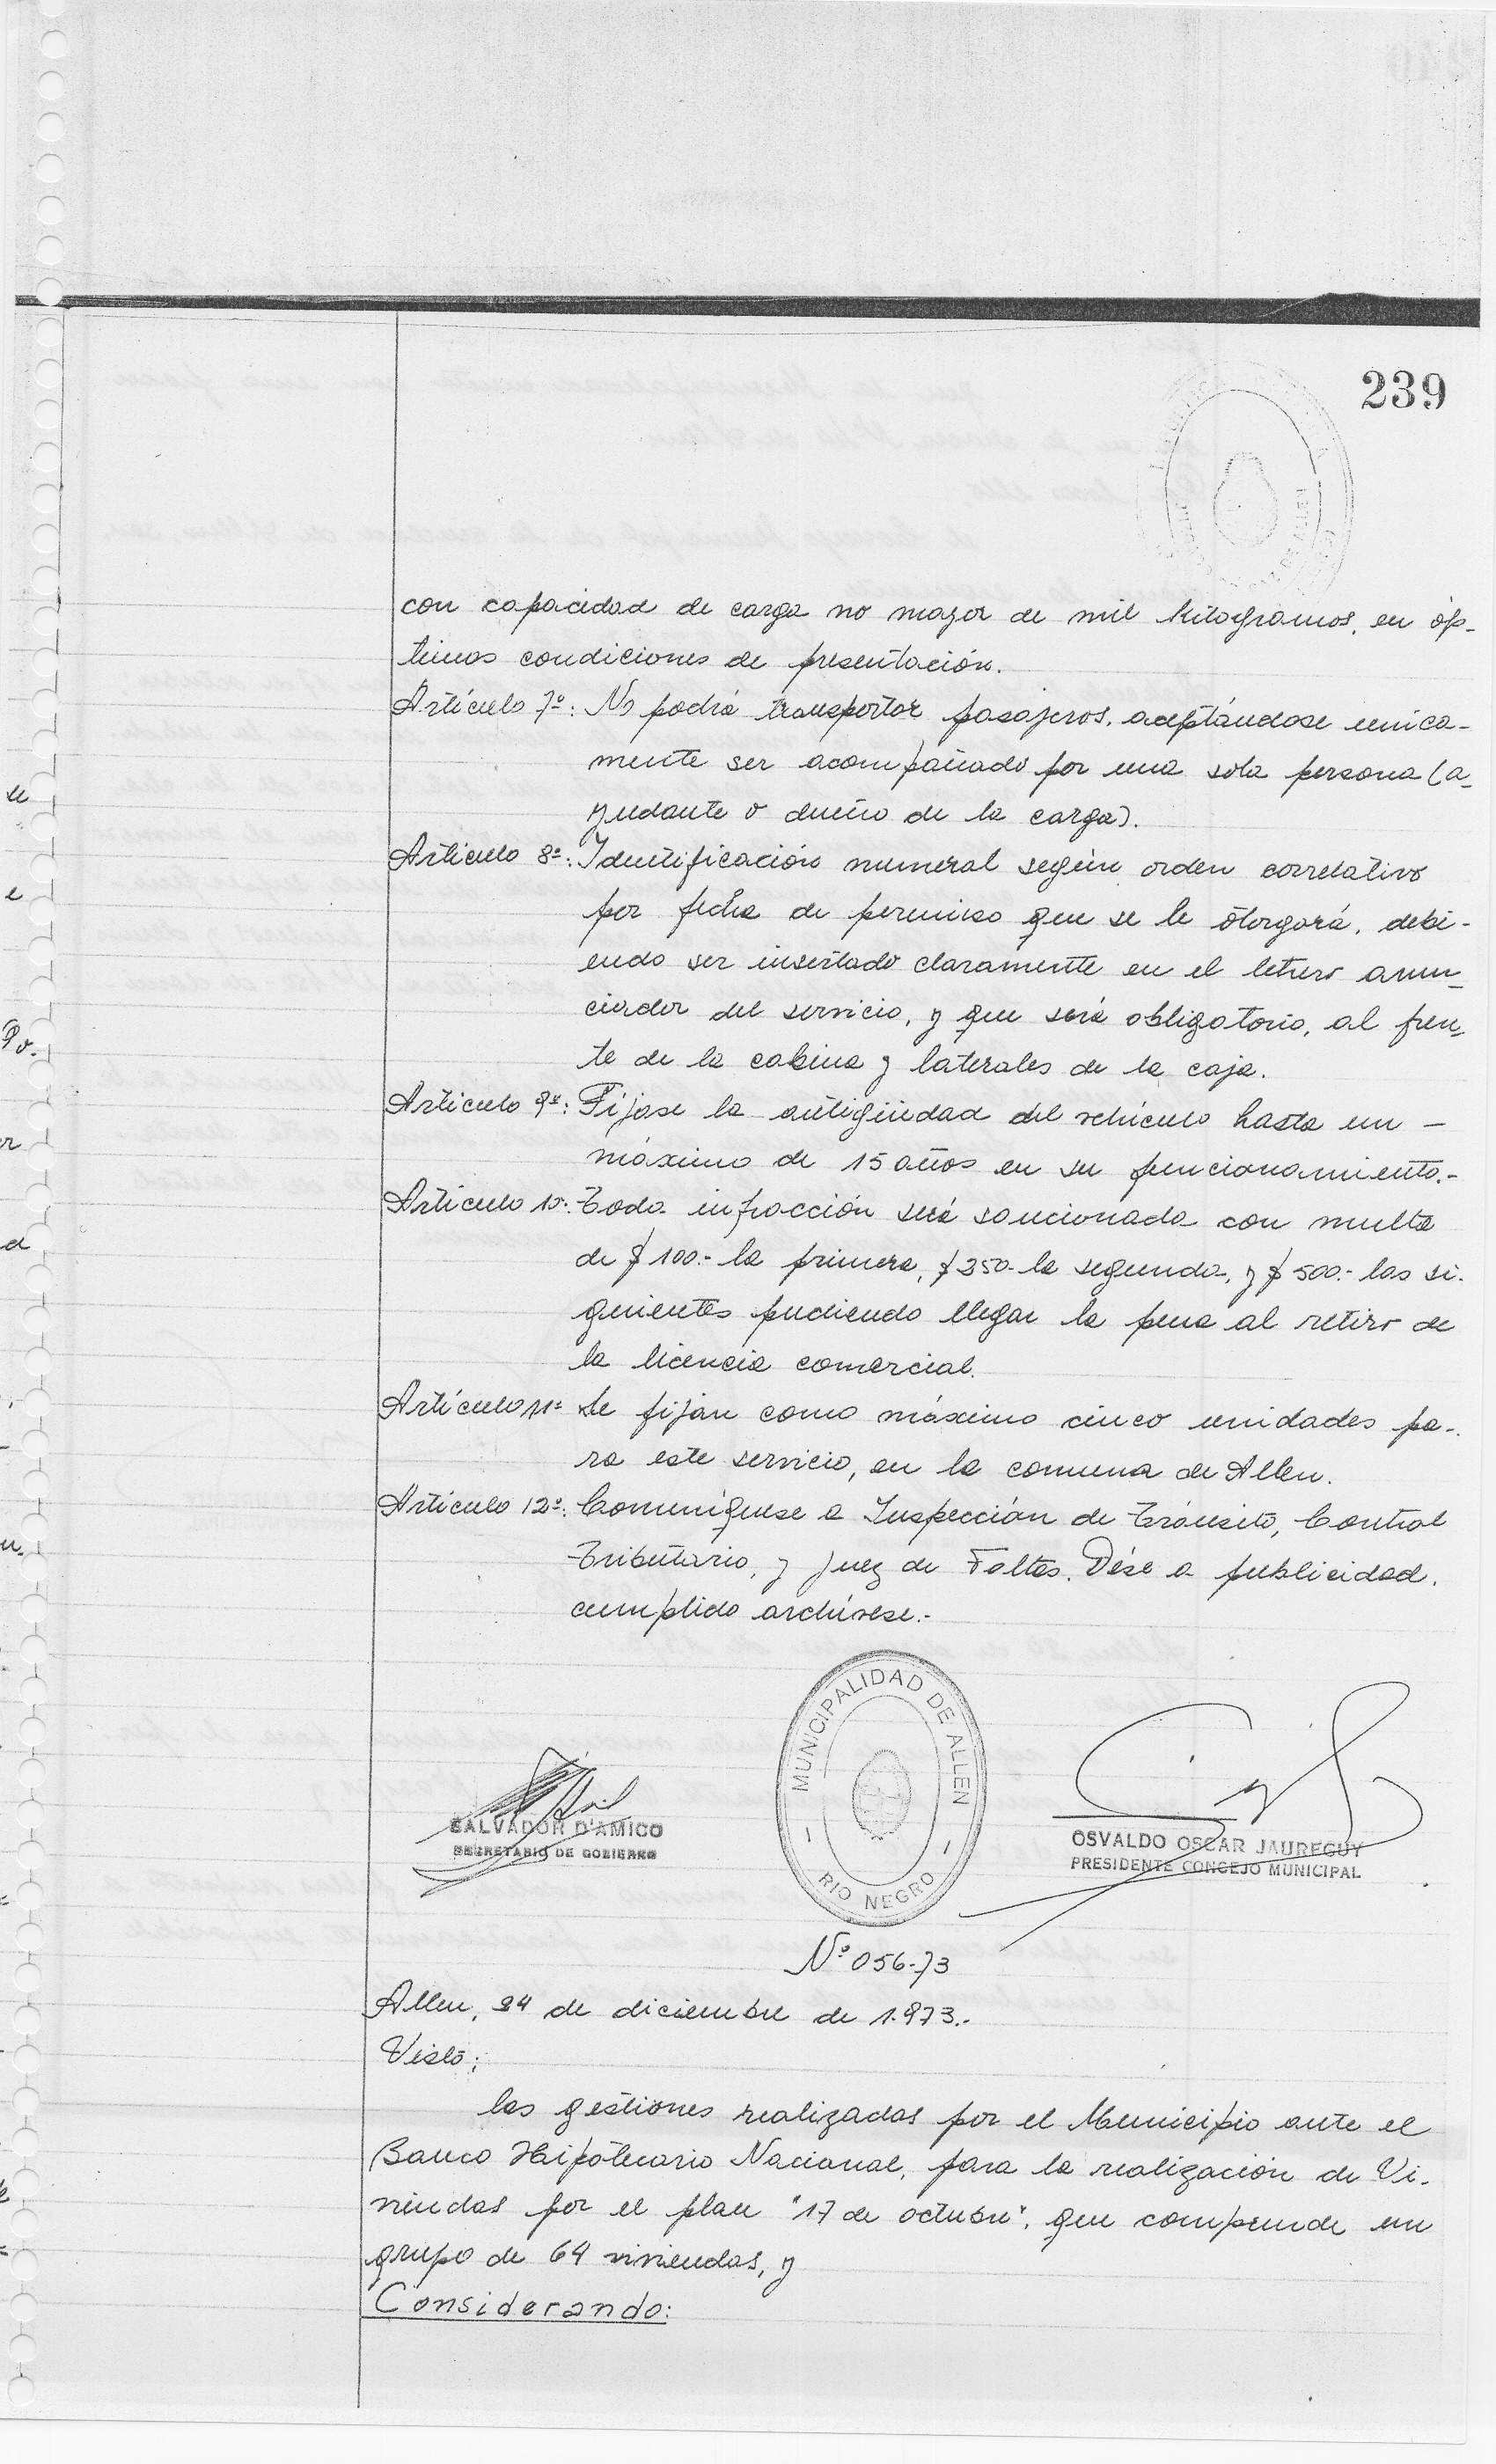 239
con capacidad de carga no mayor de mil kilogramos, en óp-
timas condiciones de presentación.
Artículo 7º: No podrá transportar pasajeros, aceptándose unica-
mente ser acompañado por una sola persona (a-
yudante o dueño de la carga).
Artículo 8º: Identificación numeral según orden correlativo
por fecha de permiso que se le otorgará, debi-
endo ser insertado claramente en el letrero anun-
ciador del servicio, y que será obligatorio, al fren-
te de la cabina y laterales de la caja.
Artículo 9º: Fíjase la antigüedad del vehículo hasta un -
máximo de 15 años en su funcionamiento.-
Artículo 10: Toda infracción será sancionada con multa
de $ 100.- la primera, $ 250- la segunda, y $ 500.- las si-
guientes pudiendo llegar la pena al retiro de
la licencia comercial.
Artículo 11º Se fijan como máximo cinco unidades pa-
ra este servicio, en la comuna de Allen.
Artículo 12º: Comuníquese a Inspección de Tránsito, Control
Tributario, y Juez de Faltas. Dése a publicidad.
cumplido archívese.-
MUNICIPALIDAD DE ALLEN
RIO NEGRO
SALVADOR D'AMICO
SECRETARIO DE GOBIERNO
OSVALDO OSCAR JAUREGUY
PRESIDENTE CONCEJO MUNICIPAL
Nº 056-73
Allen, 24 de diciembre de 1.973.-
Visto:
las gestiones realizadas por el Municipio ante el
Banco Hipotecario Nacional, para la realización de Vi-
viendas por el plan "17 de octubre", que comprende un
grupo de 64 viviendas, y
Considerando: